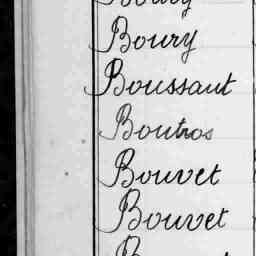 Boury
Boussaut
Boutros
Bouvet
Bouvet